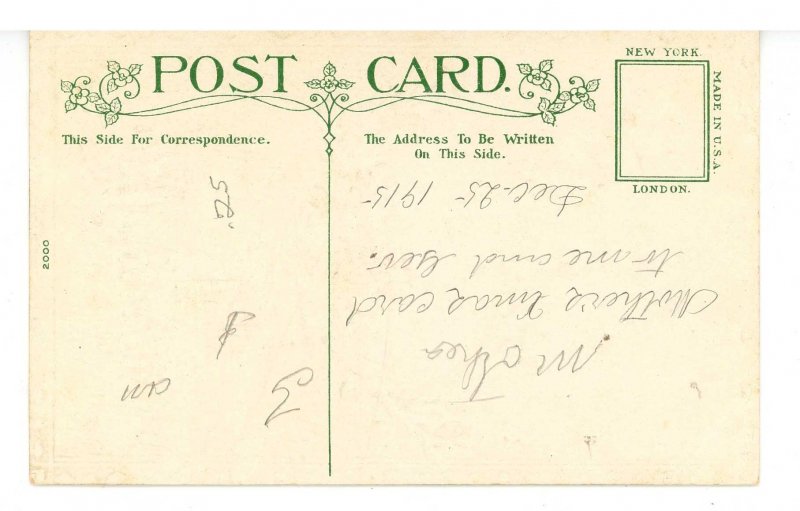 POST CARD.
NEW YORK.
MADE IN U.S.A.
LONDON.
This Side For Correspondence.
The Address To Be Written
On This Side.
2000
.25
Mother
Mother's Xmas card
to me and Geo.
Dec-25-1915-
3